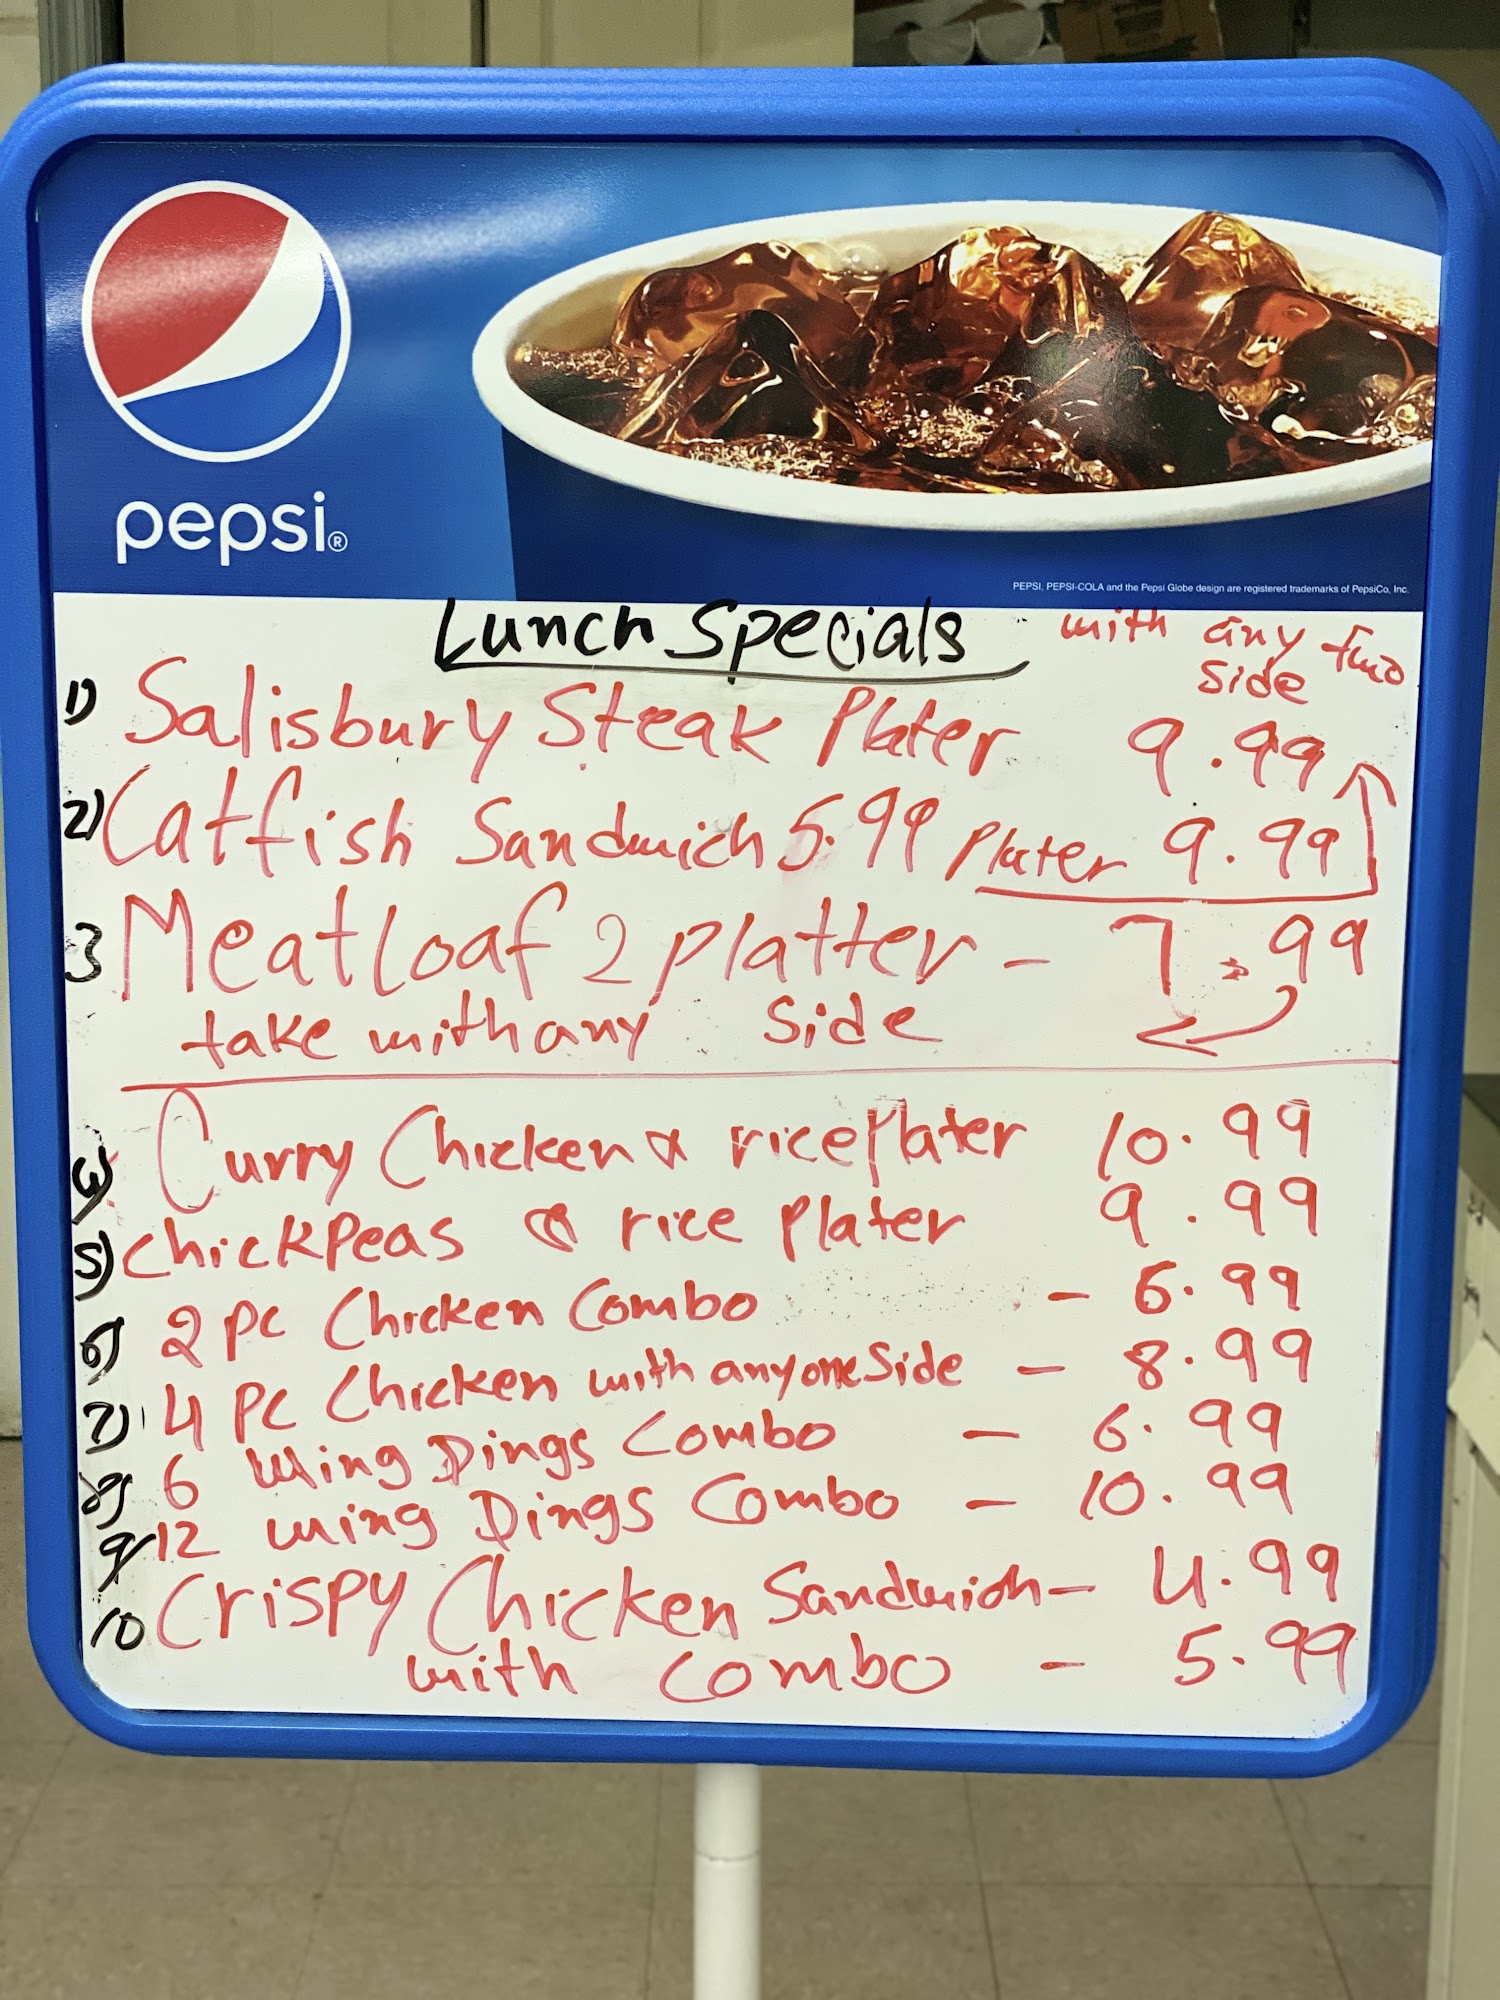 pepsi®
PEPSI, PEPSI-COLA and the Pepsi Globe design are registered trademarks of PepsiCo, Inc.
Lunch Specials
with any two
side
1) Salisbury Steak Plater 9.99
2) Catfish Sandwich 5.99 Plater 9.99
3 Meatloaf 2 platter - 7.99
take with any side
4) Curry Chicken & rice Plater 10.99
5) Chickpeas & rice plater 9.99
6) 2 PC Chicken Combo - 6.99
7) 4 PC Chicken with any one Side - 8.99
8) 6 Wing Dings Combo - 6.99
9) 12 wing Dings Combo - 10.99
10 Crispy Chicken Sandwich - 4.99
with combo - 5.99